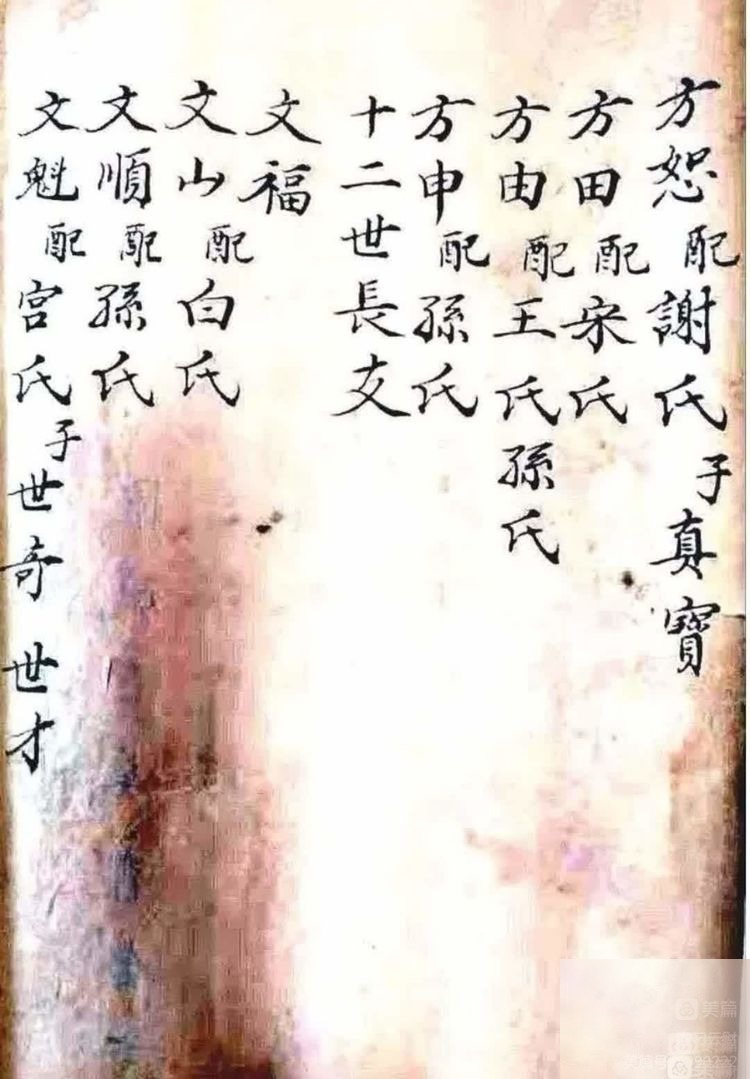 方恕配謝氏子真寶
方田配宋氏
方由配王氏孫氏
方申配孫氏
十二世長支
文福
文山配白氏
文順配孫氏
文魁配宮氏子世奇世才
美篇